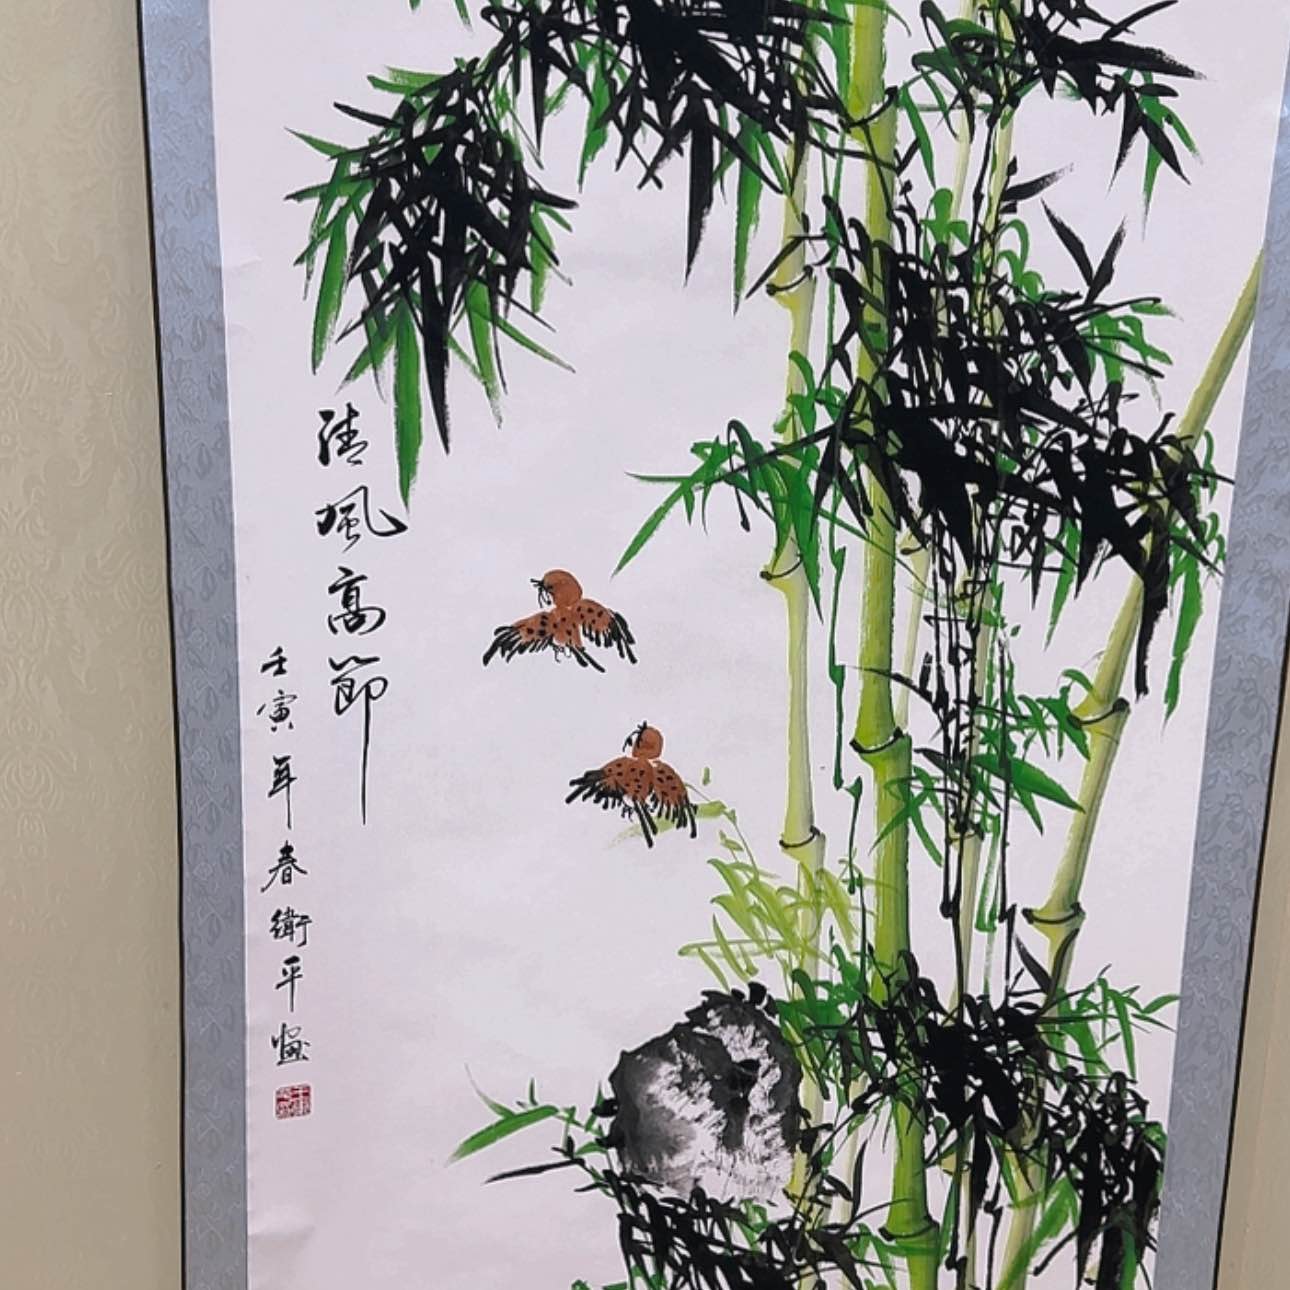 清風高節
壬寅年春衛平畫